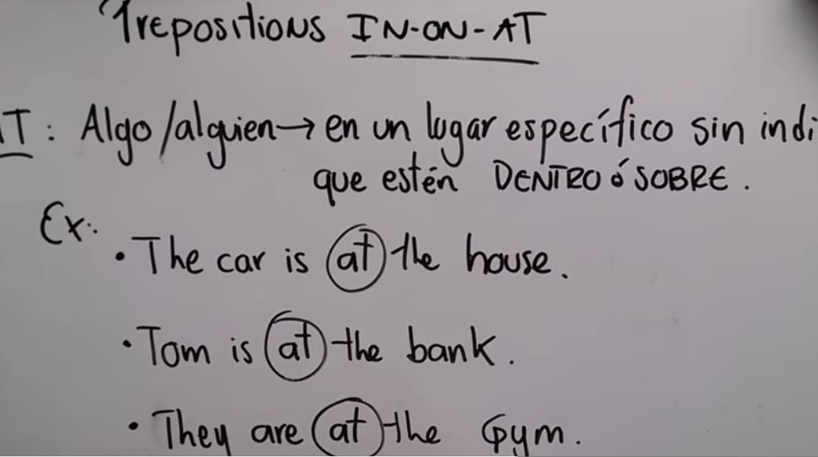 Prepositions IN-ON-AT
AT: Algo/alguien→ en un lugar específico sin indi
que estén DENTRO ó SOBRE.
Ex:
• The car is at the house.
• Tom is at the bank.
• They are at the Gym.